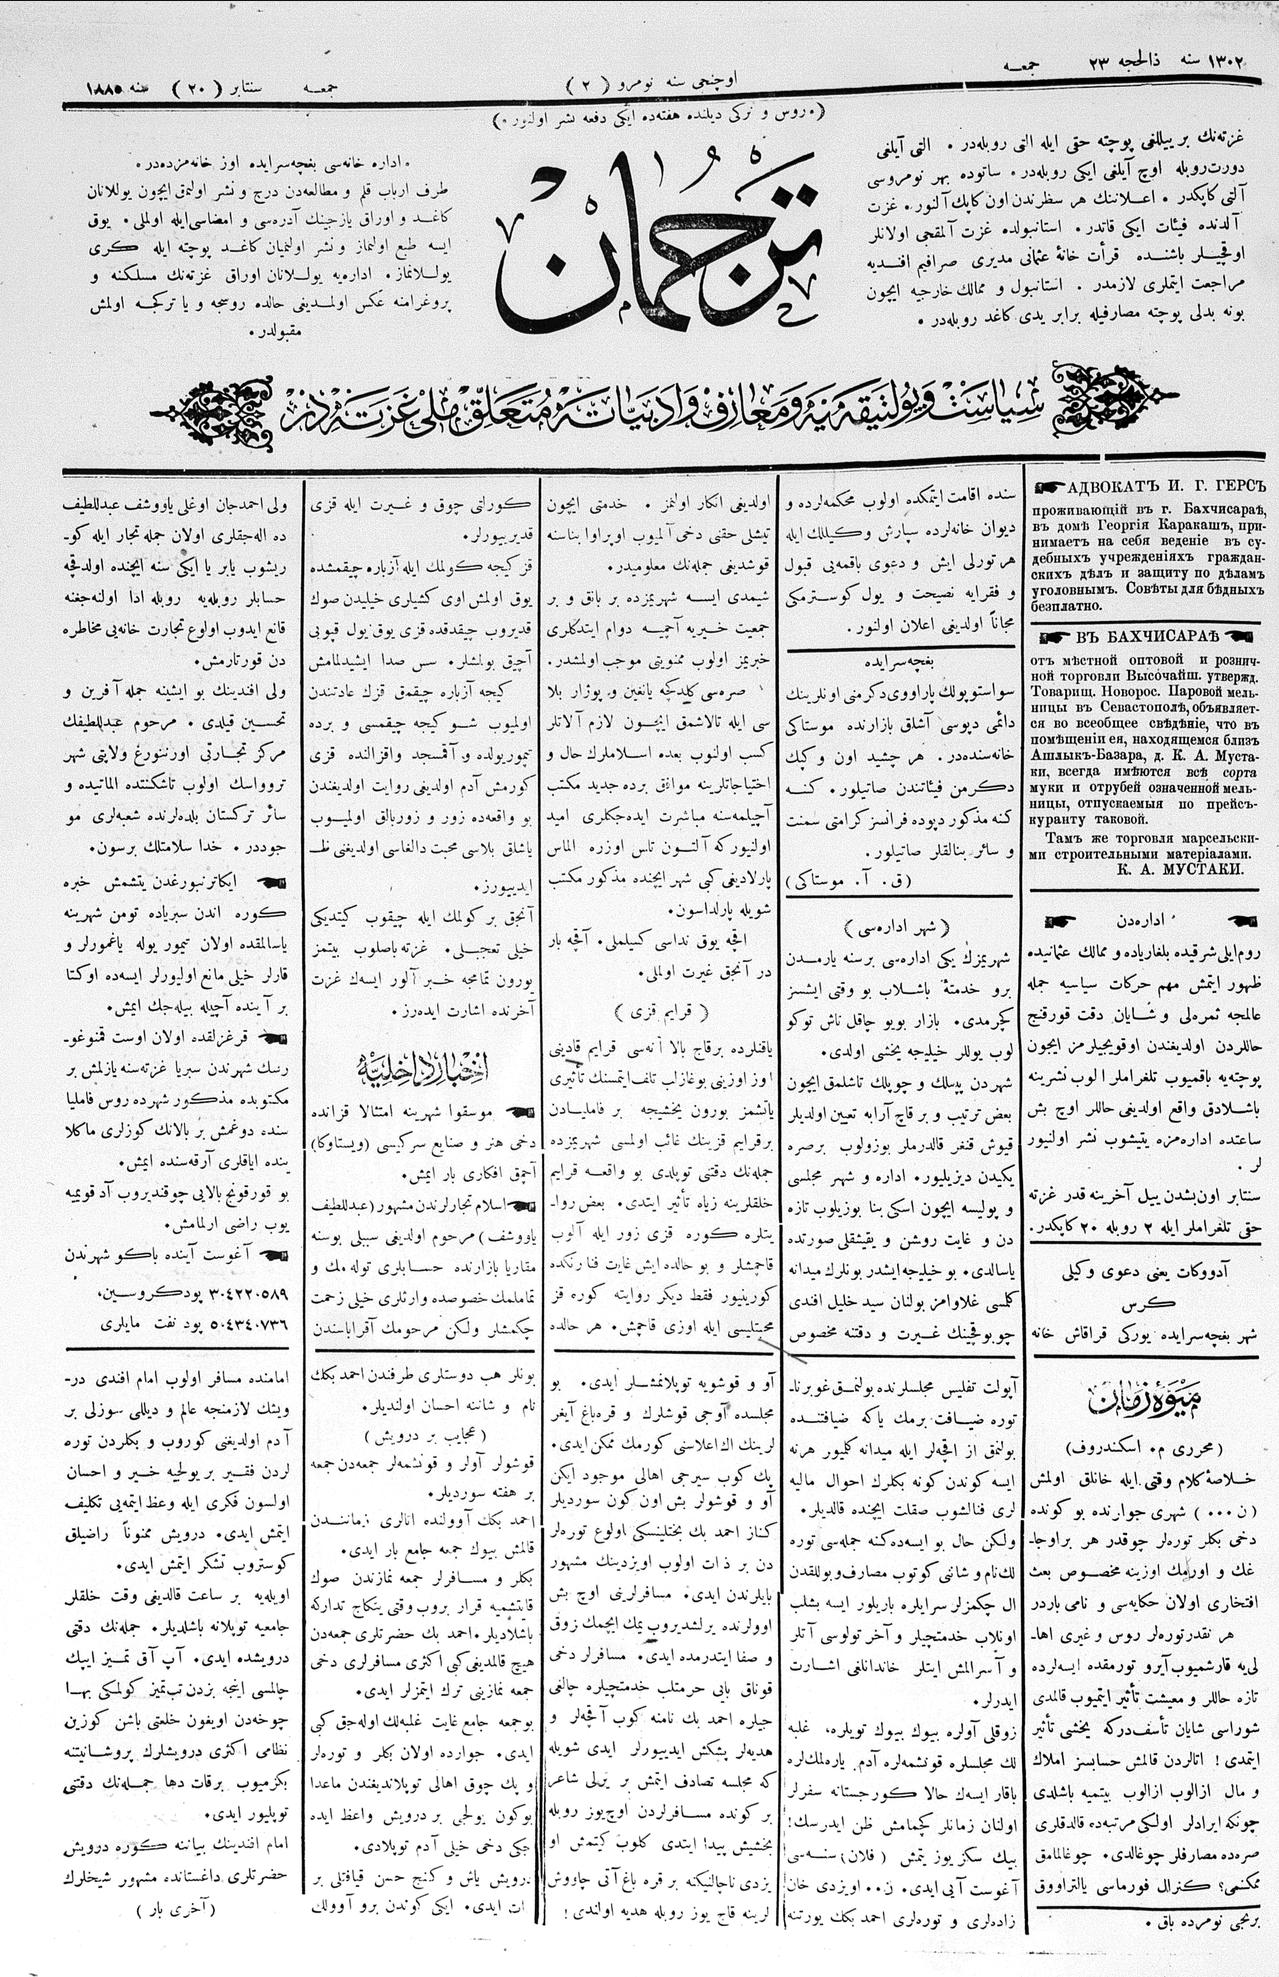 ۱۳۰۲ سنه ذالحجه ۲۳ جمعه
اوچنجی سنه نومرو (۲)
جمعه سنتابر (۲۰) سنه ۱۸۸۵
(روس و ترکی دیلنده هفته‌ده ایکی دفعه نشر اولنور)
غزته‌نك بر ییللغی پوچته حقی ایله التی روبله‌در . التی آیلغی
دورت روبله اوچ آیلغی ایکی روبله‌در . ساتوده بهر نومروسی
آلتی کاپکدر . اعلاننك هر سطرندن اون کاپك آلنور . غزت
آلدنده فیئات ایکی قاتدر . استانبولده غزت آلمقجی اولانلر
اوقجیلر باشنده قرأت خانۀ عثمانی مدیری صرافیم افندیه
مراجعت ایتملری لازمدر . استانبول و ممالك خارجیه ایچون
بونه بدلی پوچته مصارفیله برابر یدی کاغد روبله‌در .
ترجمان
اداره خانه‌سی بغچه‌سرایده اوز خانه‌مزده‌در .
طرف ارباب قلم و مطالعه‌دن درج و نشر اولنمق ایچون یوللانان
کاغد و اوراق یازجینك آدره‌سی و امضاسی ایله اولملی . یوق
ایسه طبع اولنماز و نشر اولنمیان کاغد پوچته ایله کری
یوللانماز . اداره‌یه یوللانان اوراق غزته‌نك مسلکنه و
پروغرامنه عکس اولمدیغی حالده روسجه و یا ترکجه اولمش
مقبولدر .
سیاست و پولتیقه‌یه و معارف و ادبیاته متعلق ملی غزته‌در
АДВОКАТЪ И. Г. ГЕРСЪ
проживающій въ г. Бахчисараѣ,
въ домѣ Георгія Каракашъ, при-
нимаетъ на себя веденіе въ су-
дебныхъ учрежденіяхъ граждан-
скихъ дѣлъ и защиту по дѣламъ
уголовнымъ. Совѣты для бѣдныхъ
безплатно.
ВЪ БАХЧИСАРАѢ
отъ мѣстной оптовой и рознич-
ной торговли Высочайш. утвержд.
Товарищ. Новорос. Паровой мель-
ницы въ Севастополѣ, объявляет-
ся во всеобщее свѣдѣніе, что въ
помѣщеніи ея, находящемся близъ
Ашлыкъ-Базара, д. К. А. Муста-
ки, всегда имѣются всѣ сорта
муки и отрубей означенной мель-
ницы, отпускаемыя по прейсъ-
куранту таковой.
Тамъ же торговля марсельски-
ми строительными матеріалами.
К. А. МУСТАКИ.
اداره‌دن
روم‌ایلی شرقیده بلغاریاده و ممالك عثمانیده
ظهور ایتمش مهم حرکات سیاسیه جمله
عالمجه ثمره‌لی و شایان دقت قورقنج
حاللردن اولدیغندن اوقویجیلرمز ایچون
پوچته‌یه باقمیوب تلغراملر الوب نشرینه
باشلادق واقع اولدیغی حاللر اوچ بش
ساعتده اداره‌مزه یتیشوب نشر اولنیور
لر .
سنتابر اون‌بشدن ییل آخرینه قدر غزته
حقی تلغراملر ایله ۲ روبله ۲۰ کاپکدر .
آدووکات یعنی دعوی وکیلی
کرس
شهر بغچه‌سرایده یورکی قراقاش خانه
سنده اقامت ایتمکده اولوب محکمه‌لرده و
دیوان خانه‌لرده سپارش وکیللك ایله
هر تورلی ایش و دعوی باقمه‌یی قبول
و فقرایه نصیحت و یول کوسترمکی
مجاناً اولدیغی اعلان اولنور .
بغچه‌سرایده
سواستوپولك پاراووی دکرمنی اونلرینك
دائمی دپوسی آشلق بازارنده موستاکی
خانه‌سنده‌در . هر چشید اون و کپك
دکرمن فیئاتندن صاتیلور . کنه
کنه مذکور دپوده فرانسز کرامتی سمنت
و سائر بنالقلر صاتیلور .
(ق . آ . موستاکی)
(شهر اداره‌سی)
شهریمزك یکی اداره‌سی برسنه یارمدن
برو خدمتۀ باشلاب بو وقتی ایشسز
کچرمدی . بازار بویو چاقل تاش توکو
لوب یوللر خیلیجه یخشی اولدی .
شهردن پیسلك و چوپلك تاشلمق ایچون
بعض ترتیب و برقاچ آرابه تعیین اولدیلر
قیوش قنغر قالدرملر بوزولوب برصره
یکیدن دیزیلیور . اداره و شهر مجلسی
و پولیسه ایچون اسکی بنا بوزیلوب تازه
دن و غایت روشن و یقیشقلی صورتده
یاسالدی . بو خیلیجه ایشدر بونلرك میدانه
کلمسی غلاوامز بولنان سید خلیل افندی
چوبوقچینك غیرت و دقتنه مخصوص
اولدیغی انکار اولنمز . خدمتی ایچون
تیشلی حقنی دخی آلمیوب اوپراوا بناسنه
قوشدیغی جمله‌نك معلومیدر .
شیمدی ایسه شهریمزده بر بانق و بر
جمعیت خیریه آچمیه دوام ایتدکلری
خبریمز اولوب ممنونیتی موجب اولمشدر .
صره‌سی کلدکجه یانغین و پوژار بلا
سی ایله تالاشمق ایچون لازم آلاتلر
کسب اولنوب بعده اسلاملرك حال و
احتیاجاتلرینه موافق برده جدید مکتب
آچیلمه‌سنه مباشرت ایده‌جکلری امید
اولنیورکه آلتون تاس اوزره الماس
پارلادیغی کبی شهر ایچنده مذکور مکتب
شویله پارلداسون .
اقچه یوق نداسی کسیلملی . آقچه بار
در آنجق غیرت اولملی .
(قرایم قزی)
یاقنلرده برقاچ بالا آنه‌سی قرایم قادینی
اوز اوزینی بوغازلب تلف ایتمسنك تأثیری
یاتشمز بورون یخشیجه بر فامیلیادن
برقرایم قزینك غائب اولمسی شهریمزده
جمله‌نك دقتنی توپلادی بو واقعه قرایم
خلقلرینه زیاه تأثیر ایتدی . بعض روا-
یتلره کوره قزی زور ایله آلوب
قاچمشلر و بو حالده ایش غایت فنا رنکده
کورینیور فقط دیکر روایته کوره قز
محبتلیسی ایله اوزی قاچمش . هر حالده
کورلتی چوق و غیرت ایله قزی
قدیریورلر .
قز کیجه کولمك ایله آزباره چیقمشده
یوق اولمش اوی کشیلری خیلیدن صوك
قدیروب چیقدقده قزی یوق یول قپویی
آچیق بولمشلر . سس صدا ایشیدلمامش
کیجه آزباره چیقمق قزك عادتندن
اولمیوب شو کیجه چیقمسی و برده
تیمور یولده و آقمسجد واقزالنده قزی
کورمش آدم اولدیغی روایت اولدیغندن
بو واقعه‌ده زور و زوربالق اولمیوب
یاشلق بلاسی محبت دالغاسی اولدیغنی ظن
ایدییورز .
آنجق بر کولمك ایله چیقوب کیتدیکی
خیلی تعجبلی . غزته باصلوب بیتمز
بورون تمامجه خبر آلور ایسه‌ك غزت
آخرنده اشارت ایده‌رز .
اخبار داخلیه
موسقوا شهرینه امتثالا قزانده
دخی هنر و صنایع سرکیسی (ویستاوکا)
آچمق افکاری بار ایمش .
اسلام تجارلرندن مشهور (عبداللطیف
یاووشف) مرحوم اولدیغی سببلی بوسنه
مقاریا بازارنده حسابلری توله‌مك و
تماملمك خصوصده وارثلری خیلی زحمت
چکمشلر ولکن مرحومك آقراباسندن
ولی احمدجان اوغلی یاووشف عبداللطیف
ده اله‌جقلری اولان جمله تجار ایله کو-
ریشوب یابر یا ایکی سنه ایچنده اولدقجه
حسابلر روبله‌یه روبله ادا اولنه‌جغنه
قانع ایدوب اولوغ تجارت خانه‌یی مخاطره
دن قورتارمش .
ولی افندینك بو ایشینه جمله آفرین و
تحسین قیلدی . مرحوم عبداللطیفك
مرکز تجارتی اورنبورغ ولایتی شهر
ترووسك اولوب تاشکنتده الماتیده و
سائر ترکستان بلده‌لرنده شعبه‌لری مو
جوددر . خدا سلامتلك برسون .
ایکاترنبورغدن یتشمش خبره
کوره اندن سبریاده تومن شهرینه
یاسالمقده اولان تیمور یوله یاغمورلر و
قارلر خیلی مانع اولیورلر ایسه‌ده اوکتا
بر آینده آچیله بیله‌جك ایمش .
قرغزلقده اولان اوست قمنوغو-
رسك شهرندن سبریا غزته‌سنه یازلمش بر
مکتوبده مذکور شهرده روس فامیلیا
سنده دوغمش بر بالانك کوزلری ماکلا
ینده ایاقلری آرقه‌سنده ایمش .
بو قورقونج بالایی چوقندیروب آد قویمیه
یوب راضی ارلمامش .
آغوست آینده باکو شهرندن
۳۰۴۲۲۰۵۸۹ پود کروسین،
۵۰۴۳۴۰۷۳۶ پود نفت مایلری
میوۀ زمان
(محرری م . اسکندروف)
خلاصۀ کلام وقتی ایله خانلق اولمش
(ن ...) شهری جوارنده بو کونده
دخی بکلر توره‌لر چوقدر هر براوجا-
غك و اورامك اوزینه مخصوص بعث
افتخاری اولان حکایه‌سی و نامی باردر
هر نقدر توره‌لر روس و غیری اها-
لی‌یه قارشمیوب آیرو تورمقده ایسه‌لرده
تازه حاللر و معیشت تأثیر ایتمیوب قالمدی
شوراسی شایان تأسف درکه یخشی تأثیر
ایتمدی ! اتالردن قالمش حسابسز املاك
و مال ازالوب ازالوب بیتمیه باشلدی
چونکه ایرادلر اولکی مرتبه‌ده قالدقلری
صره‌ده مصارفلر چوغالدی . چوغالمامق
ممکنمی ؟ کنرال فورماسی یالتراووق
برنجی نومرده باق .
آپولت تفلیس مجلسلرنده بولنمق غوبرنا-
توره ضیافت برمك یاکه ضیافتنده
بولنمق از اقچه‌لر ایله میدانه کلمیور هرنه
ایسه کوندن کونه بکلرك احوال مالیه
لری فنالشوب صقلت ایچنده قالدیلر .
ولکن حال بو ایسه‌ده کنه جمله‌سی توره
لك نام و شاننی کوتوب مصارف و بوللقدن
ال چکمزلر سرایلره باریلور ایسه بشلب
اونلاب خدمتچیلر و آخر تولوسی آتلر
و آسرالمش ایتلر خاندانلغی اشارت
ایدرلر .
زوقلی آولره بیوك بیوك تویلره، غلبه
لك مجلسلره قونشمه‌لره آدم یاره‌لمك‌لره
باقار ایسه‌ك حالا کورجستانه سفرلر
اولنان زمانلر کچمامش ظن ایدرسك !
بیك سکز یوز یتمش (فلان) سنه‌سی
آغوست آیی ایدی . ن .. اویزدی خان
زاده‌لری و توره‌لری احمد بکك یورتنه
آو و قوشویه توپلانمشلر ایدی . بو
مجلسده آوجی قوشلرك و قره‌باغ آیغر
لرینك اك اعلاسنی کورمك ممکن ایدی .
پك کوب سیرجی اهالی موجود ایکن
آو و قوشولر بش اون کون سوردیلر
کناز احمد بك بختلینسکی اولوغ توره‌لر
دن بر ذات اولوب اویزدینك مشهور
بایلرندن ایدی . مسافرلرینی اوچ بش
اوولرنده یرلشدیروب یمك ایچمك زوق
و صفا ایتدرمده ایدی . مسافرلر دخی
قوناق بایی حرمتلب خدمتچیلره چالغی
جیلره احمد بك نامنه کوب آقچه‌لر و
هدیه‌لر پشکش ایدییورلر ایدی شویله
که مجلسه تصادف ایتمش بر یرلی شاعر
برکونده مسافرلردن اوچ‌یوز روبله
بخشیش پیدا ایتدی کلوب کیتمش او
یزدی ناچالنیکنه بر قره باغ آتی چاووش
لرینه قاچ یوز روبله هدیه اولندی !
بونلر هب دوستلری طرفندن احمد بکك
نام و شاننه احسان اولندیلر .
(عجایب بر درویش)
قوشولر آولر و قونشمه‌لر جمعه‌دن جمعه
بر هفته سوردیلر .
احمد بکك آوولنده اتالری زماننن
قالمش بیوك جمعه جامع بار ایدی .
بکلر و مسافرلر جمعه نمازندن صوك
قایتشمیه قرار بروب وقتی یتکاج تدارکه
باشلادیلر . احمد بك حضرتلری جمعه‌دن
هیچ قالمدیغی کبی اکثری مسافرلری دخی
جمعه نمازینی ترك ایتمزلر ایدی .
بوجمعه جامع غایت غلبه‌لك اوله‌جق کبی
ایدی . جوارده اولان بکلر و توره‌لر
و پك چوق اهالی توپلاندیغندن ماعدا
بوکون یولجی بر درویش واعظ ایده
جکی دخی خیلی آدم توپلادی .
درویش یاش و کنج حسن قیافتلی بر
ات ایدی . ایکی کوندن برو آوولك
امامنده مسافر اولوب امام افندی در-
ویشك لازمنجه عالم و دیللی سوزلی بر
آدم اولدیغنی کوروب و بکلردن توره
لردن فقیر بر یولجیه خیر و احسان
اولسون فکری ایله وعظ ایتمه‌یی تکلیف
ایتمش ایدی . درویش ممنوناً راضیلق
کوستروب تشکر ایتمش ایدی .
اویله‌یه بر ساعت قالدیغی وقت خلقلر
جامعیه توپلانه باشلدیلر . جمله‌نك دقتی
درویشده ایدی . آپ آق تمیز ایپك
چالمسی اینجه بزدن تب‌تمیز کولمکی بها
چوخه‌دن اویغون خلعتی باشن کوزین
نظامی اکثری درویشلرك پروشانیتنه
بکزمیوب برقات دها جمله‌نك دقتنی
توپلیور ایدی .
امام افندینك بیاننه کوره درویش
حضرتلری داغستانده مشهور شیخلرك
(آخری بار)